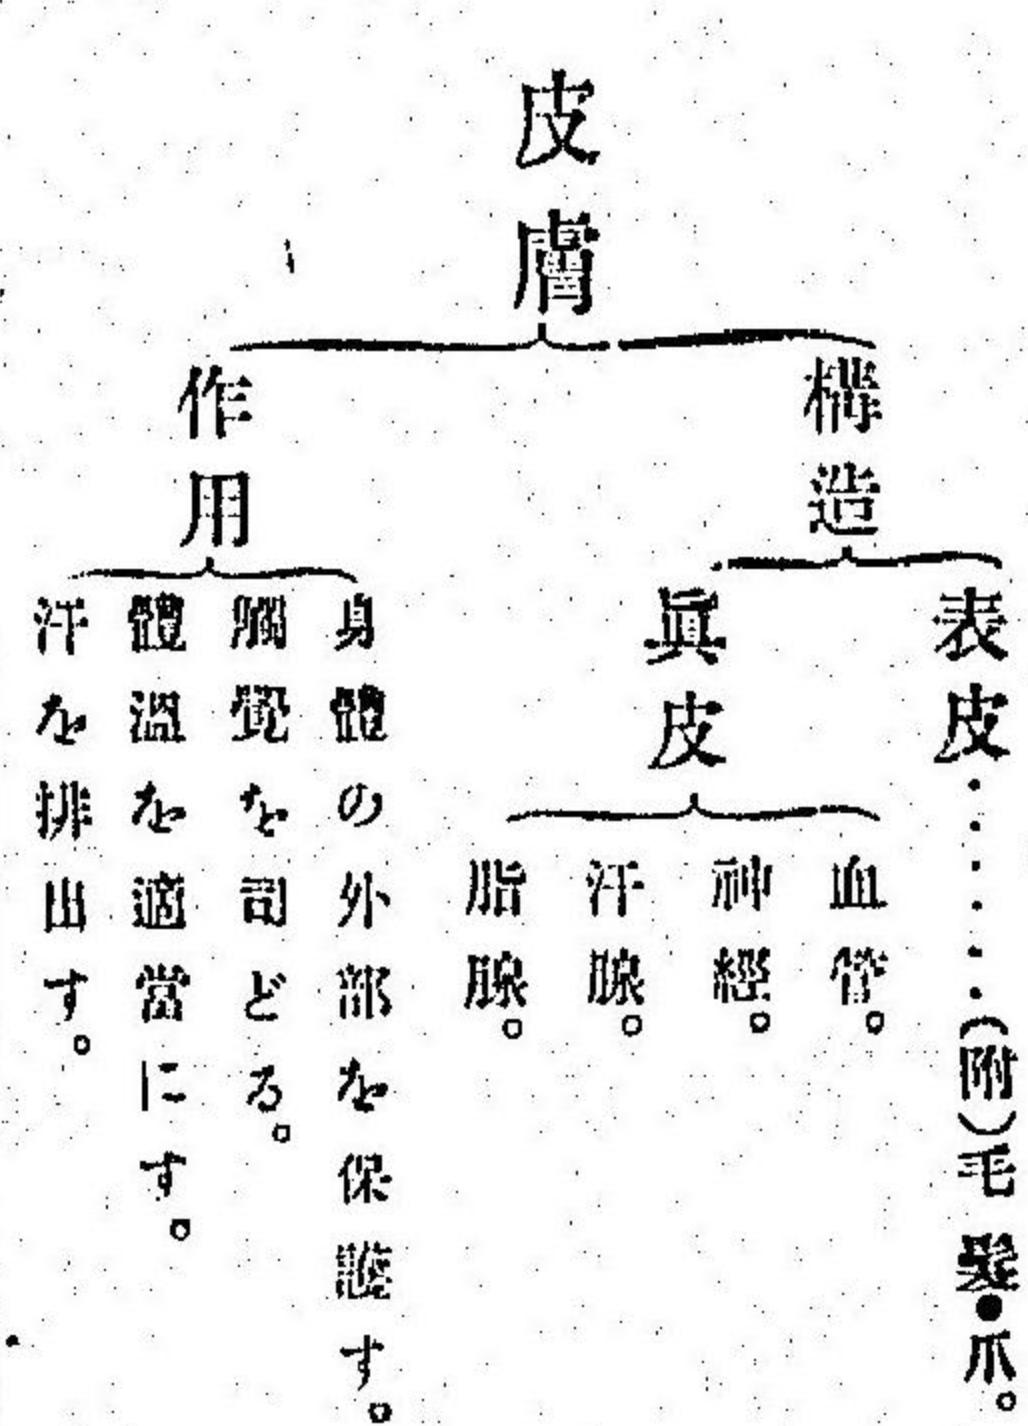 皮膚
構造
表皮……(附)毛髮●爪。
眞皮
血管。
神經。
汗腺。
脂腺。
作用
身體の外部を保護す。
觸覺を司どる。
體溫を適當にす。
汗を排出す。